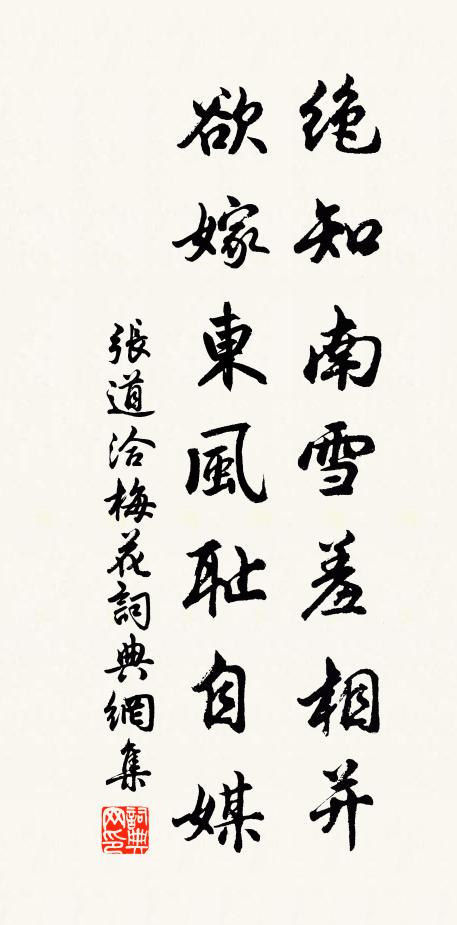 絶知南雪羞相并
欲嫁東風耻自媒
張道洽梅花詞典網集
詞典网印